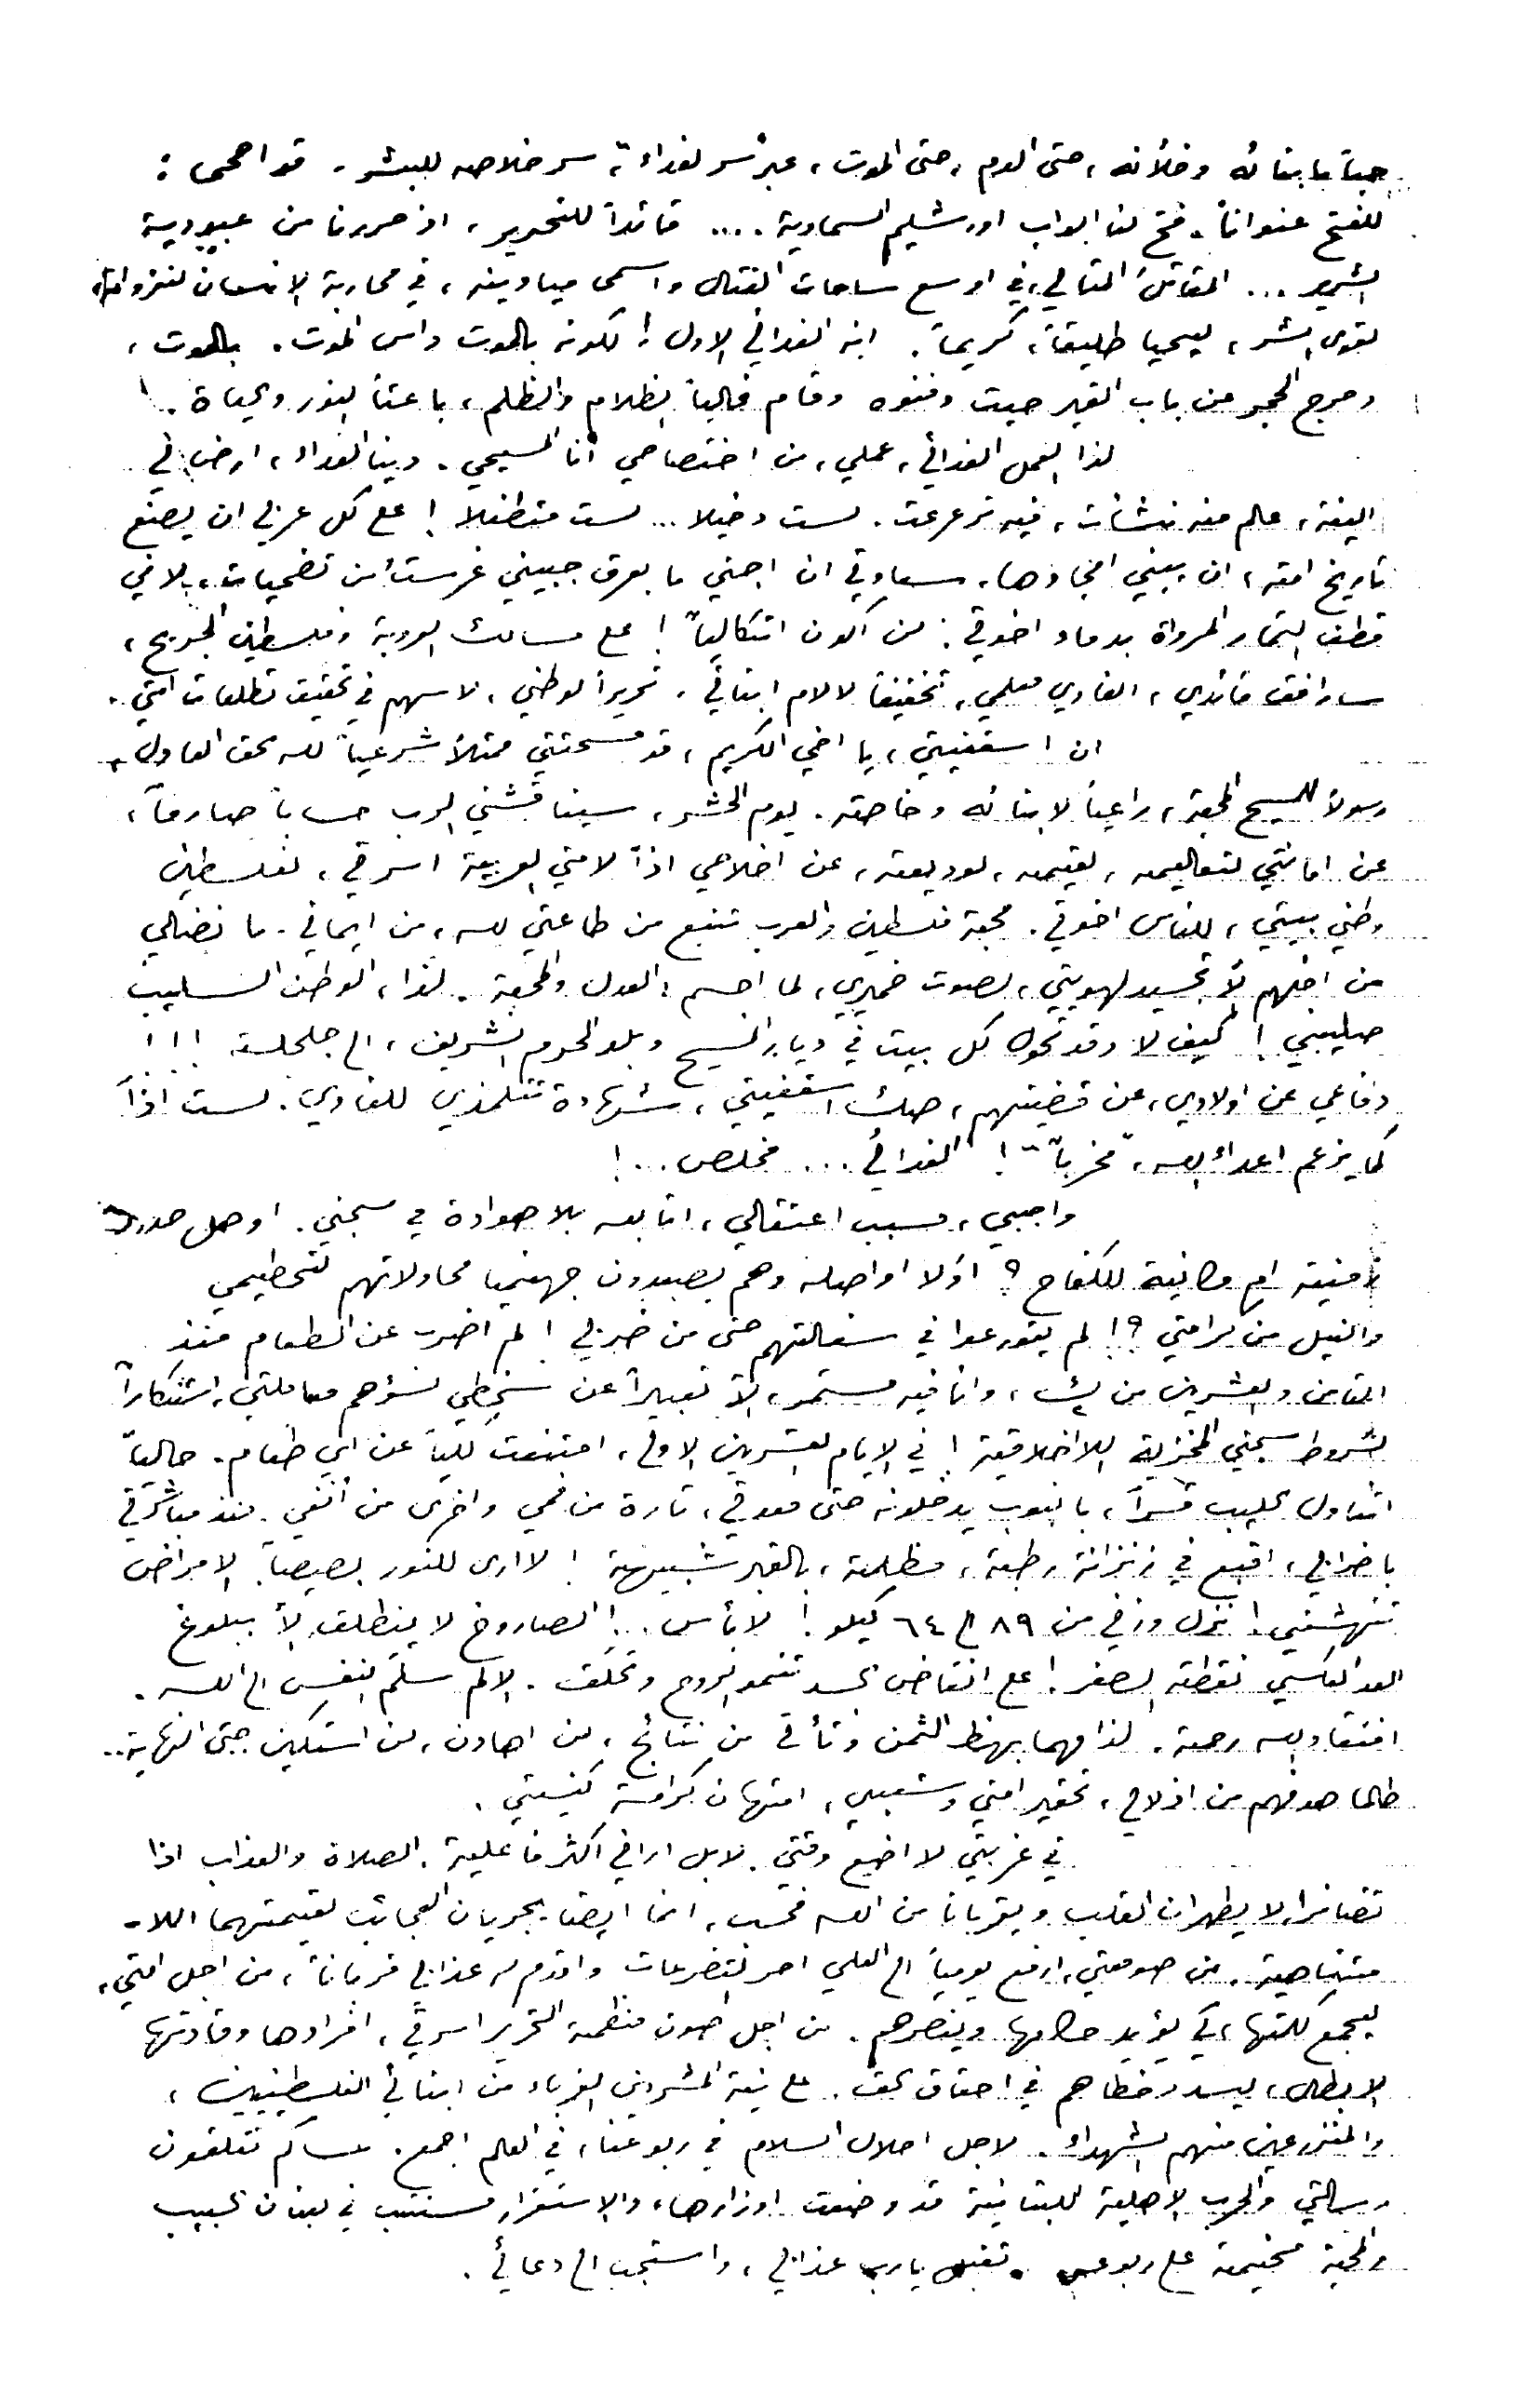 حباً بابنائه وخلائه، حتى الدم، حتى الموت، عبر "سر الفداء" سر خلاصه للبشر. قد اضحى:
للفتح عنواناً. فتح لنا ابواب اورشليم السماوية.... قائداً للتحرير، اذ حررنا من عبودية
الشرير... المقاتل المثالي، في اوسع ساحات القتال واسمى ميادينه، في محاربة الانسان لنزواته
لقوى الشر، ليحيا طليقاً، كريماً. انه الفدائي الاول! لكونه بالموت داس الموت. بالموت،
دحرج الحجر عن باب القبر حيث دفنوه وقام غالباً الظلام والظلم، باعثاً النور والحياة.
لذا العمل الفدائي، عملي، من اختصاصي أنا المسيحي. دينا الفداء، ارض لي
اليفة، عالم منه نشأت، فيه ترعرعت. لست دخيلا... لست متطفلا! على كل عربي ان يصنع
تاريخ امته، ان يبني امجادها. سعادتي ان اجني ما بعرق جبيني غرست من تضحيات، لا في
قطف الثمار المرواة بدماء اخوتي. لن اكون اتكالياً! على مسالك العروبة وفلسطين الجريح،
سارافق قائدي، الفادي معلمي، تخفيفاً لالام ابنائي. تحريراً لوطني، لاسهم في تحقيق تطلعات امتي.
ان اسقفيتي، يا اخي الكريم، قد مسحتني ممثلاً شرعياً لله الحق العادل.
رسولاً للمسيح المحبة، راعياً لابنائه وخاصته. يوم الحشر، سيناقشني الرب حساباً صارماً،
عن امانتي لتعاليمه، لقيمه، لوديعته، عن اخلاصي اذاً لامتي العربية اسرتي، لفلسطين
وطني بيتي، للناس اخوتي. محبة فلسطين والعرب تنبع من طاعتي لله، من ايماني. ما نضالي
من اجلهم إلا تجسيد لهويتي، لصوت ضميري، لما احسه: العدل والمحبة. لذا، الوطن السليب
صليبي! كيف لا وقد تحول كل بيت في ديار المسيح وبلد الحرم الشريف، الى جلجلة!!!
دفاعي عن اولادي، عن قضيتهم، صك اسقفيتي، شهادة تتلمذي للفادي. لست اذاً
كما يزعم اعداء الله، "مخرباً"! الفدائي... مخلص..!
واجبي، سبب اعتقالي، اتابعه بلا هوادة في سجني. اوهل حدود
زمنية ام مكانية للكفاح؟ اولا اواصله وهم يصعدون جهنميا محاولاتهم لتحطيمي
والنيل من كرامتي؟! لم يتورعوا في سفالتهم حتى من ضربي! لم اضرب عن الطعام منذ
الثامن والعشرين من ك٢، وانا فيه مستمر، الا تعبيراً عن سخطي لسؤهم معاملتي، استنكاراً
لشروط سجني المخزية اللااخلاقية! في الايام العشرين الاولى، امتنعت كلياً عن اي طعام. حالياً
اتناول الحليب قسراً، بانبوب يدخلونه حتى معدتي، تارة من فمي واخرى من أنفي. منذ مباشرتي
باضرابي، اقبع في زنزانة رطبة، مظلمة، بالقبر شبيهة! لا ارى للنور بصيصاً. الامراض
تنهشني! نزل وزني من ٨٩ الى ٦٤ كيلو! لا بأس..! الصاروخ لا ينطلق إلا ببلوغ
العد العكسي نقطة الصفر! على انقاض الجسد تنمو الروح وتحلق. الالم سلّم النفس الى الله.
افتقاد الله رحمة. لذا مهما بهظ الثمن وتأتى من نتائج، لن اهادن، لن استكين حتى النهاية..
طالما هدفهم من اذلالي، تحقير امتي وشعبي، امتهان كرامة كنيستي.
في غربتي لا اضيع وقتي. لا بل اراني اكثر فاعلية. الصلاة والعذاب اذا
تضافرا، لا يطهران القلب ويقربانا من الله فحسب، انما ايضا يجريان العجائب لقيمتهما اللا-
متناهية. من صومعتي، ارفع يومياً الى العلي احر التضرعات واقدم له عذابي قرباناً، من اجل امتي،
ليجمع كلمتها، كي يؤيد حكامها وينصرهم. من اجل صون منظمة التحرير اسرتي، افرادها وقادتها
الابطال، ليسدد خطاهم في احقاق الحق. على نية المشردين الغرباء من ابنائي الفلسطينيين،
والمنزرعين منهم الشهداء. لاجل احلال السلام في ربوعنا، في العالم اجمع. عساكم تتلقون
رسالتي والحرب الاهلية اللبنانية قد وضعت اوزارها، والاستقرار مستتب في لبنان الحبيب
والمحبة مخيمة على ربوعه. تقبل يا رب عذابي، واستجب الى دعائي.